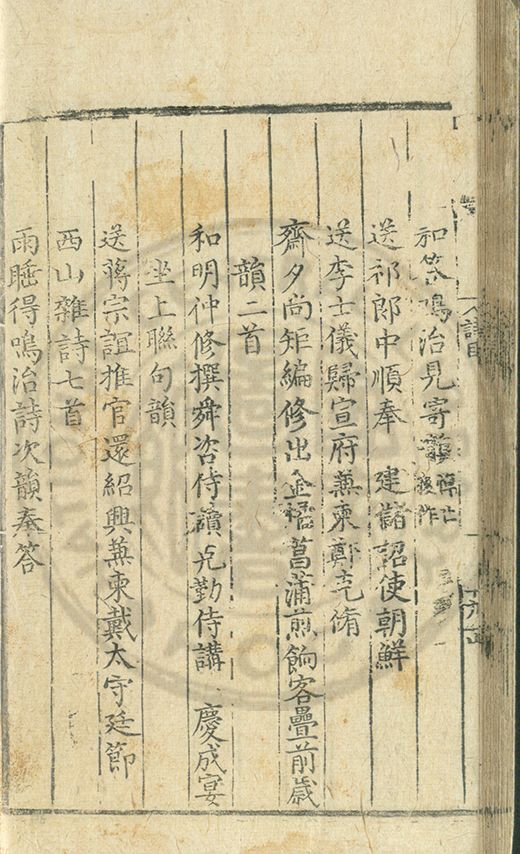 和答鳴治見寄韻
送祁郎中順奉 建儲詔使朝鮮
送李士儀歸宣府兼柬鄭克脩
齋夕尚矩編修出金橘菖蒲煎餉客疊前歲
韻二首
和明仲修撰舜咨侍讀克勤侍講 慶成宴
坐上聯句韻
送蔣宗誼推官還紹興兼柬戴太守廷節
西山雜詩七首
雨睡得鳴治詩次韻奉答